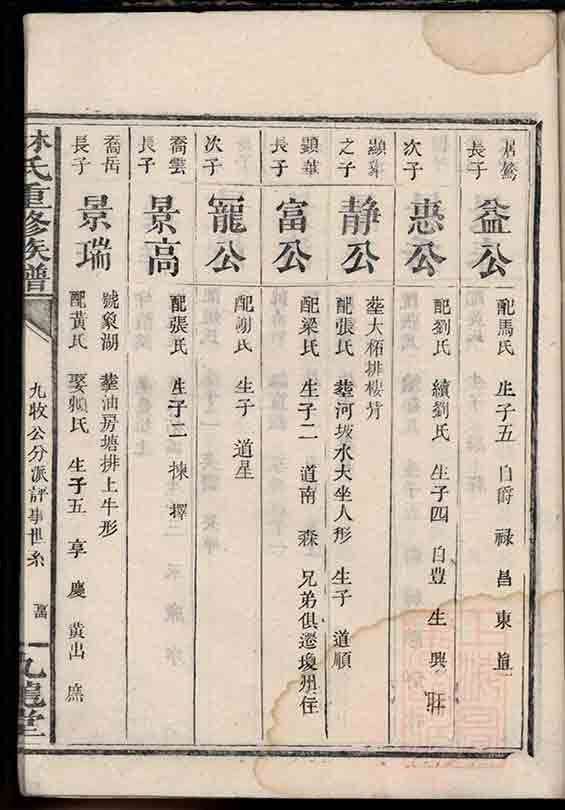 長子
益公
配馬氏 生子五 自爵 祿 昌 東 直
次子
惠公
配劉氏 續劉氏 生子四 自豊 生 興
顯彝
之子
静公
塟大柘排樓背
配張氏 塟河坡水大坐人形 生子 道順
顯華
長子
富公
配梁氏 生子二 道南 森 兄弟俱遷瓊州住
次子
寵公
配謝氏 生子 道星
喬雲
長子
景高
配張氏 生子二 揀 擇
喬岳
長子
景瑞
號象湖 塟油房塘排上牛形
配黃氏 娶賴氏 生子五 享 慶 黃出 庶
林氏重修族譜
九牧公分派評事世系
九龍堂